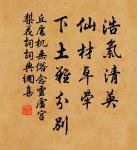 浩氣清英
仙材卓犖
下土難分別
丘處機無俗念靈虛宮
梨花詞詞典網集